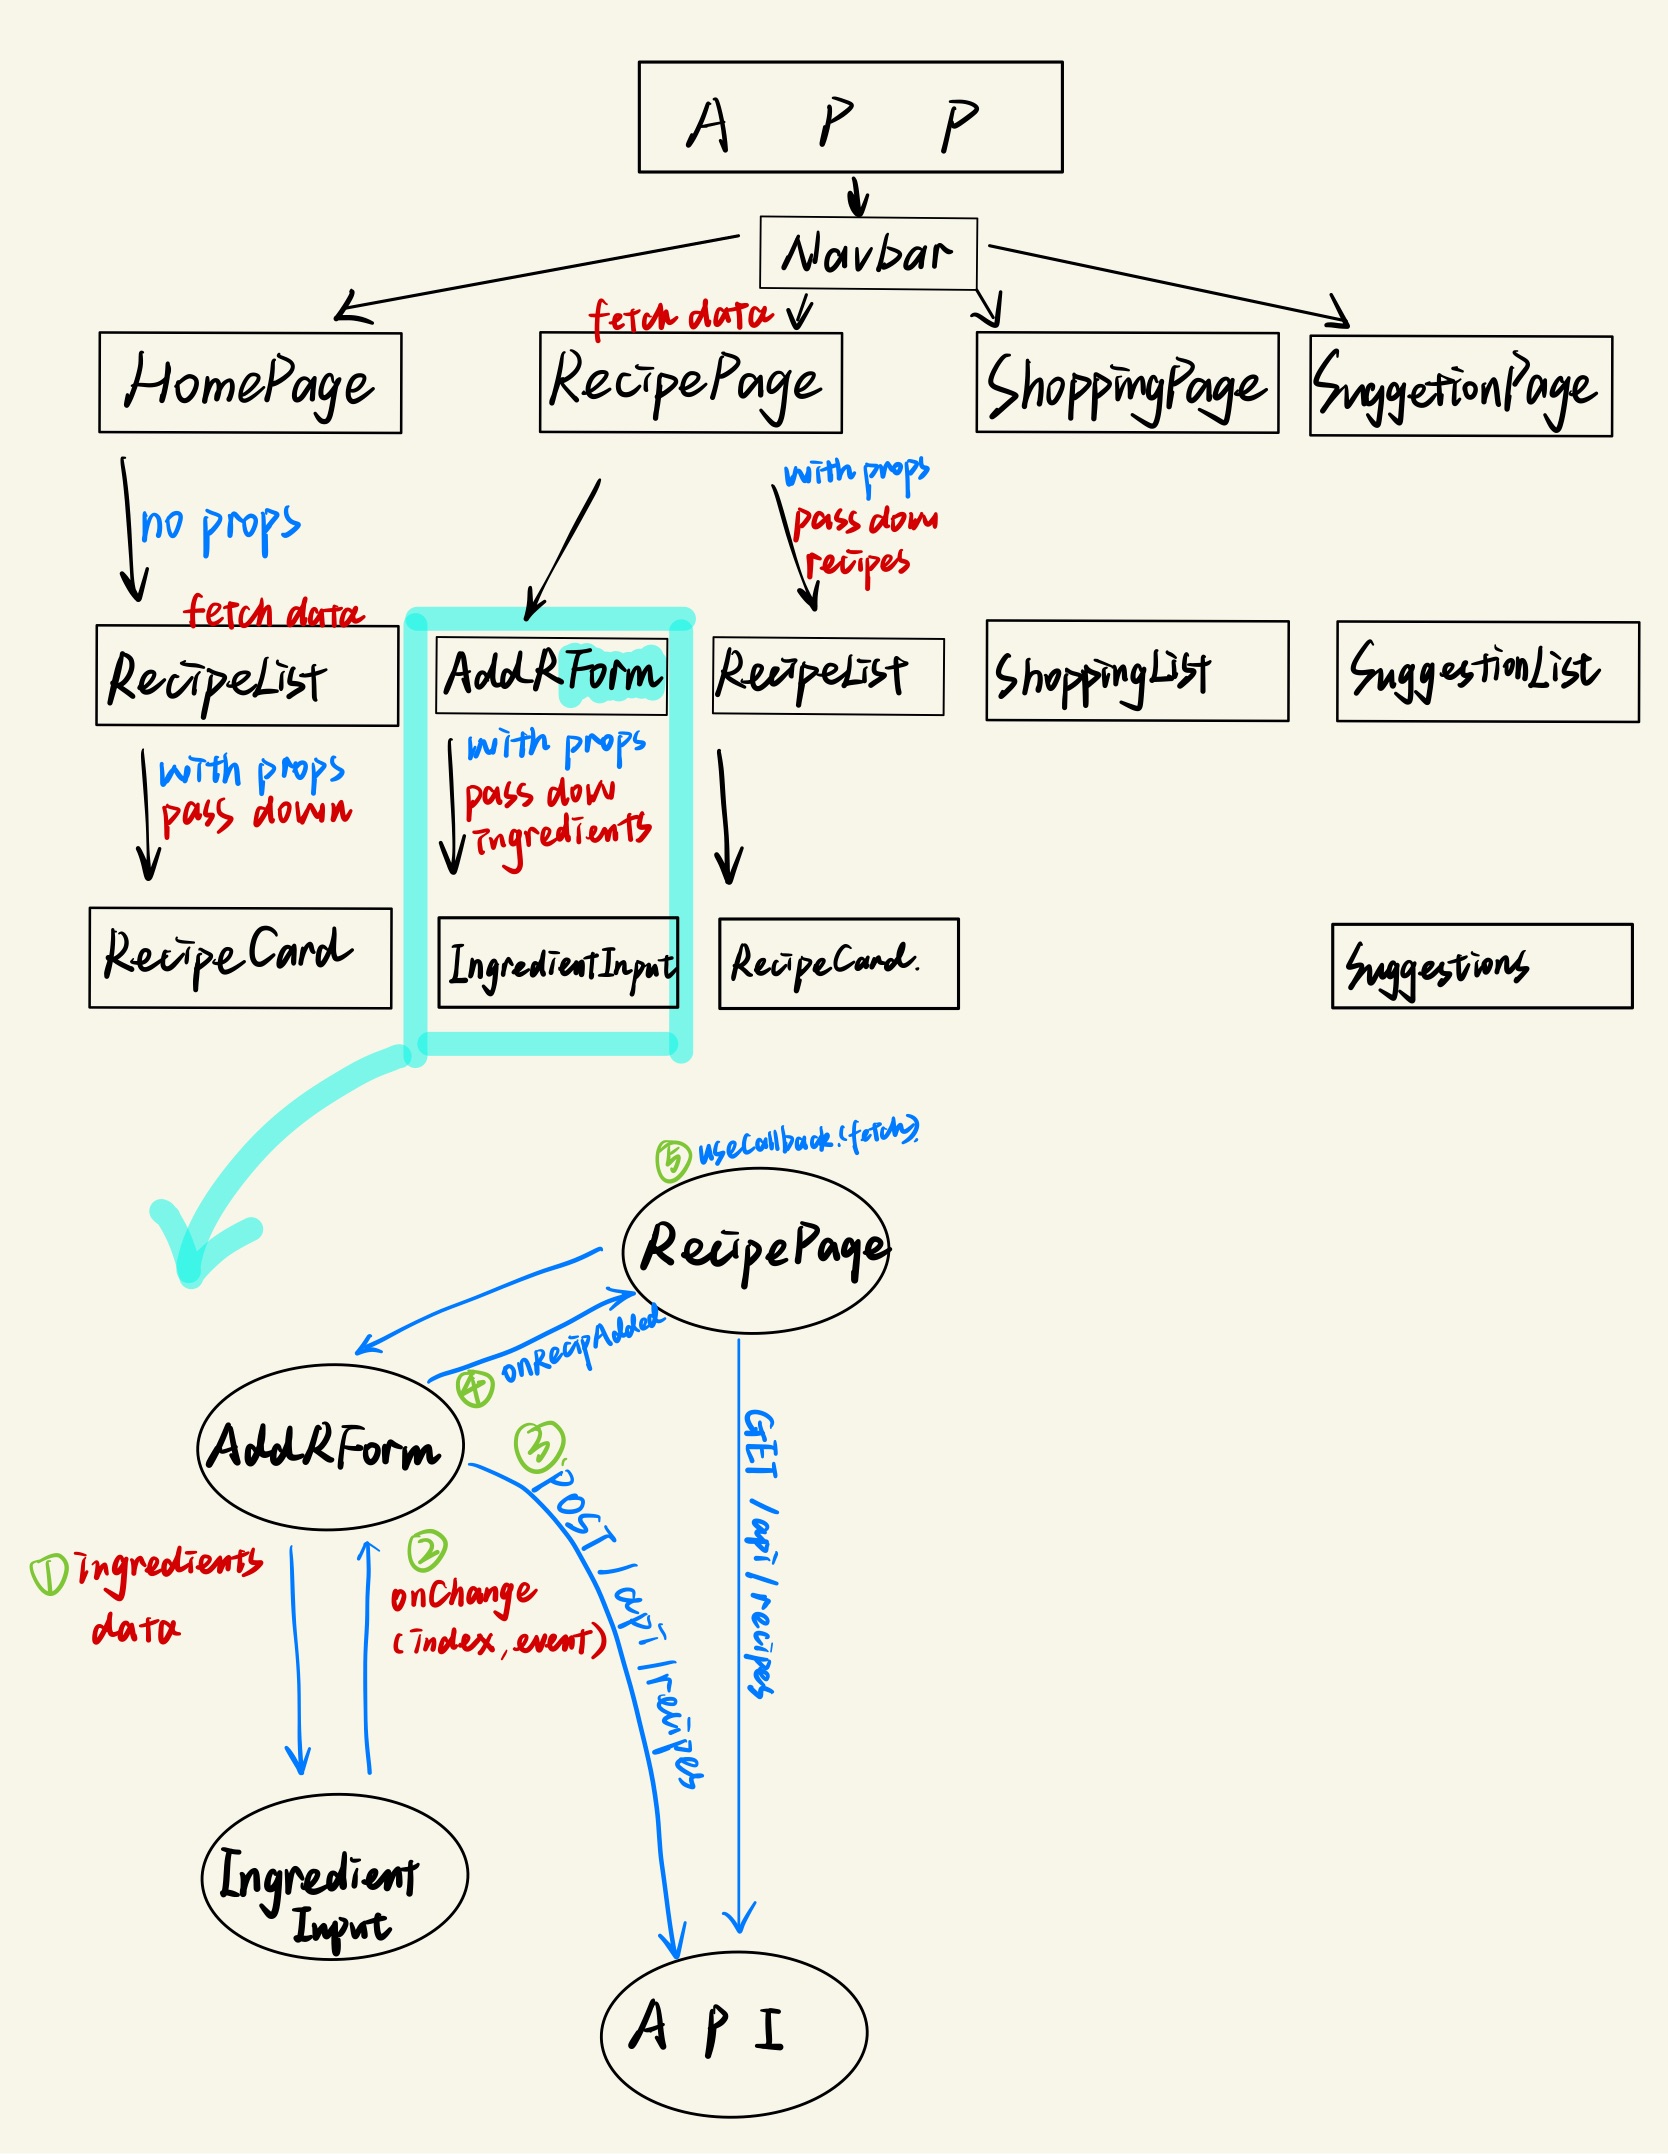 A P P
Navbar
fetch data
HomePage
RecipePage
ShoppingPage
SuggetionPage
no props
with props
pass down
recipes
fetch data
RecipeList
AddRForm
RecipeList
ShoppingList
SuggestionList
with props
pass down
with props
pass down
ingredients
RecipeCard
IngredientInput
RecipeCard.
Suggestions
⑤ useCallback.(fetch).
RecipePage
④ onRecipAdded
AddRForm
③ POST /api/recipes
GET /api/recipes
① ingredients
data
② onChange
(index, event)
Ingredient
Input
A P I